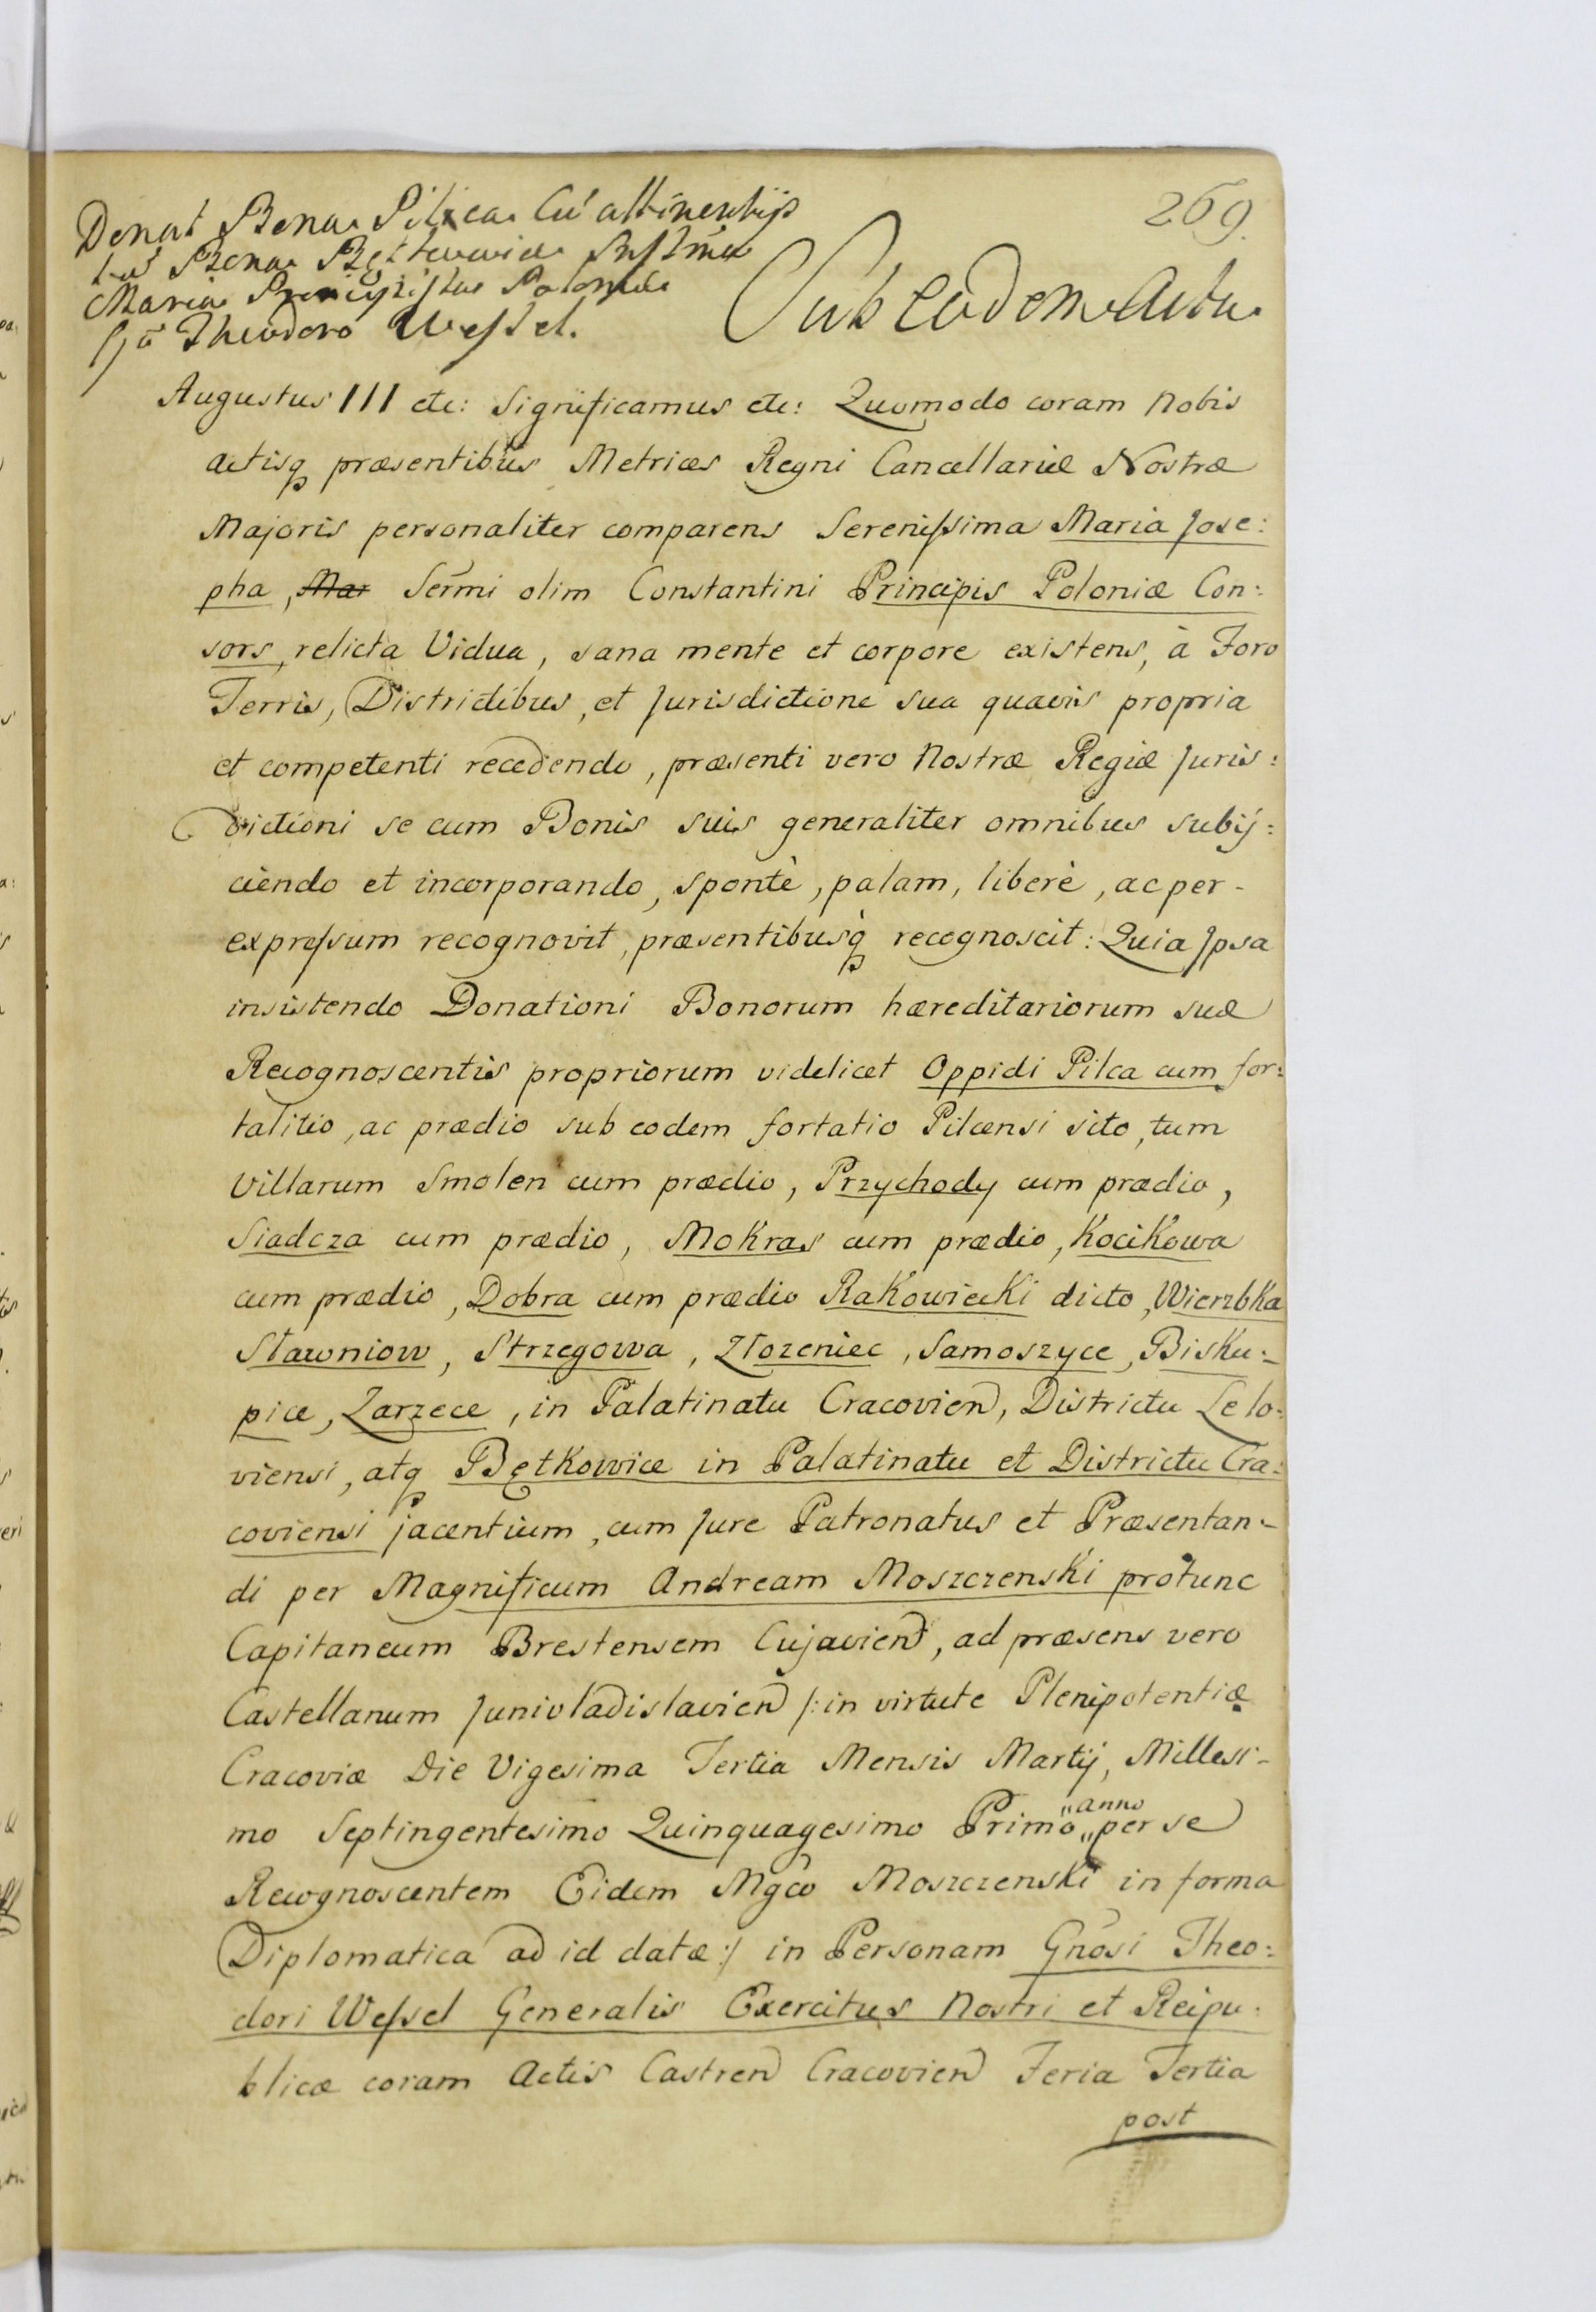 269.
Donat Bona Pilica Cu attinentijs
Bona Bętkowice
Maria Polonia
Theodoro Wessel.
Sub eodem Actu
Augustus III etc: Significamus etc: Quomodo coram Nobis
actisq præsentibus Metrices Regni Cancellariæ Nostræ
Majoris personaliter comparens Serenissima Maria Jose:
pha, Mar Sermi olim Constantini Principis Poloniæ Con:
sors, relicta Vidua, sana mente et corpore existens, à Foro
Terris, Districtibus, et Jurisdictione sua quavis propria
et competenti recedendo, præsenti vero Nostræ Regiæ Juris:
dictioni se cum Bonis suis generaliter omnibus subij:
ciendo et incorporando, spontè, palam, liberè, ac per-
expressum recognovit, præsentibusq recognoscit: Quia Ipsa
insistendo Donationi Bonorum hæreditariorum suæ
Recognoscentis propriorum videlicet Oppidi Pilca cum for:
talitio, ac prædio sub eodem fortatio Pilcensi sito, tum
Villarum Smolen cum prædio, Przychody cum prædio,
Siadcza cum prædio, Mokras cum prædio, Kocikowa
cum prædio, Dobra cum prædio Rakowiecki dicto, Wierzbka
Sławniow, Strzegowa, Złozeniec, Samoszyce, Bisku:
pice, Zarzece, in Palatinatu Cracovien, Districtu Lelo:
viensi, atq Bętkowice in Palatinatu et Districtu Cra:
coviensi jacentium, cum Jure Patronatus et Præsentan:
di per Magnificum Andream Moszczenski protunc
Capitaneum Brestensem Cujavien, ad præsens vero
Castellanum Junivladislavien /: in virtute Plenipotentiæ
Cracoviæ Die Vigesima Tertia Mensis Martij, Millesi-
mo Septingentesimo Quinquagesimo Primo "anno" per se
Recognoscentem Eidem Mgco Moszczenski in forma
Diplomatica ad id datæ :/ in Personam Gnosi Theo:
dori Wessel Generalis Exercitus Nostri et Reipu:
blicæ coram Actis Castren Cracovien Feria Tertia
post